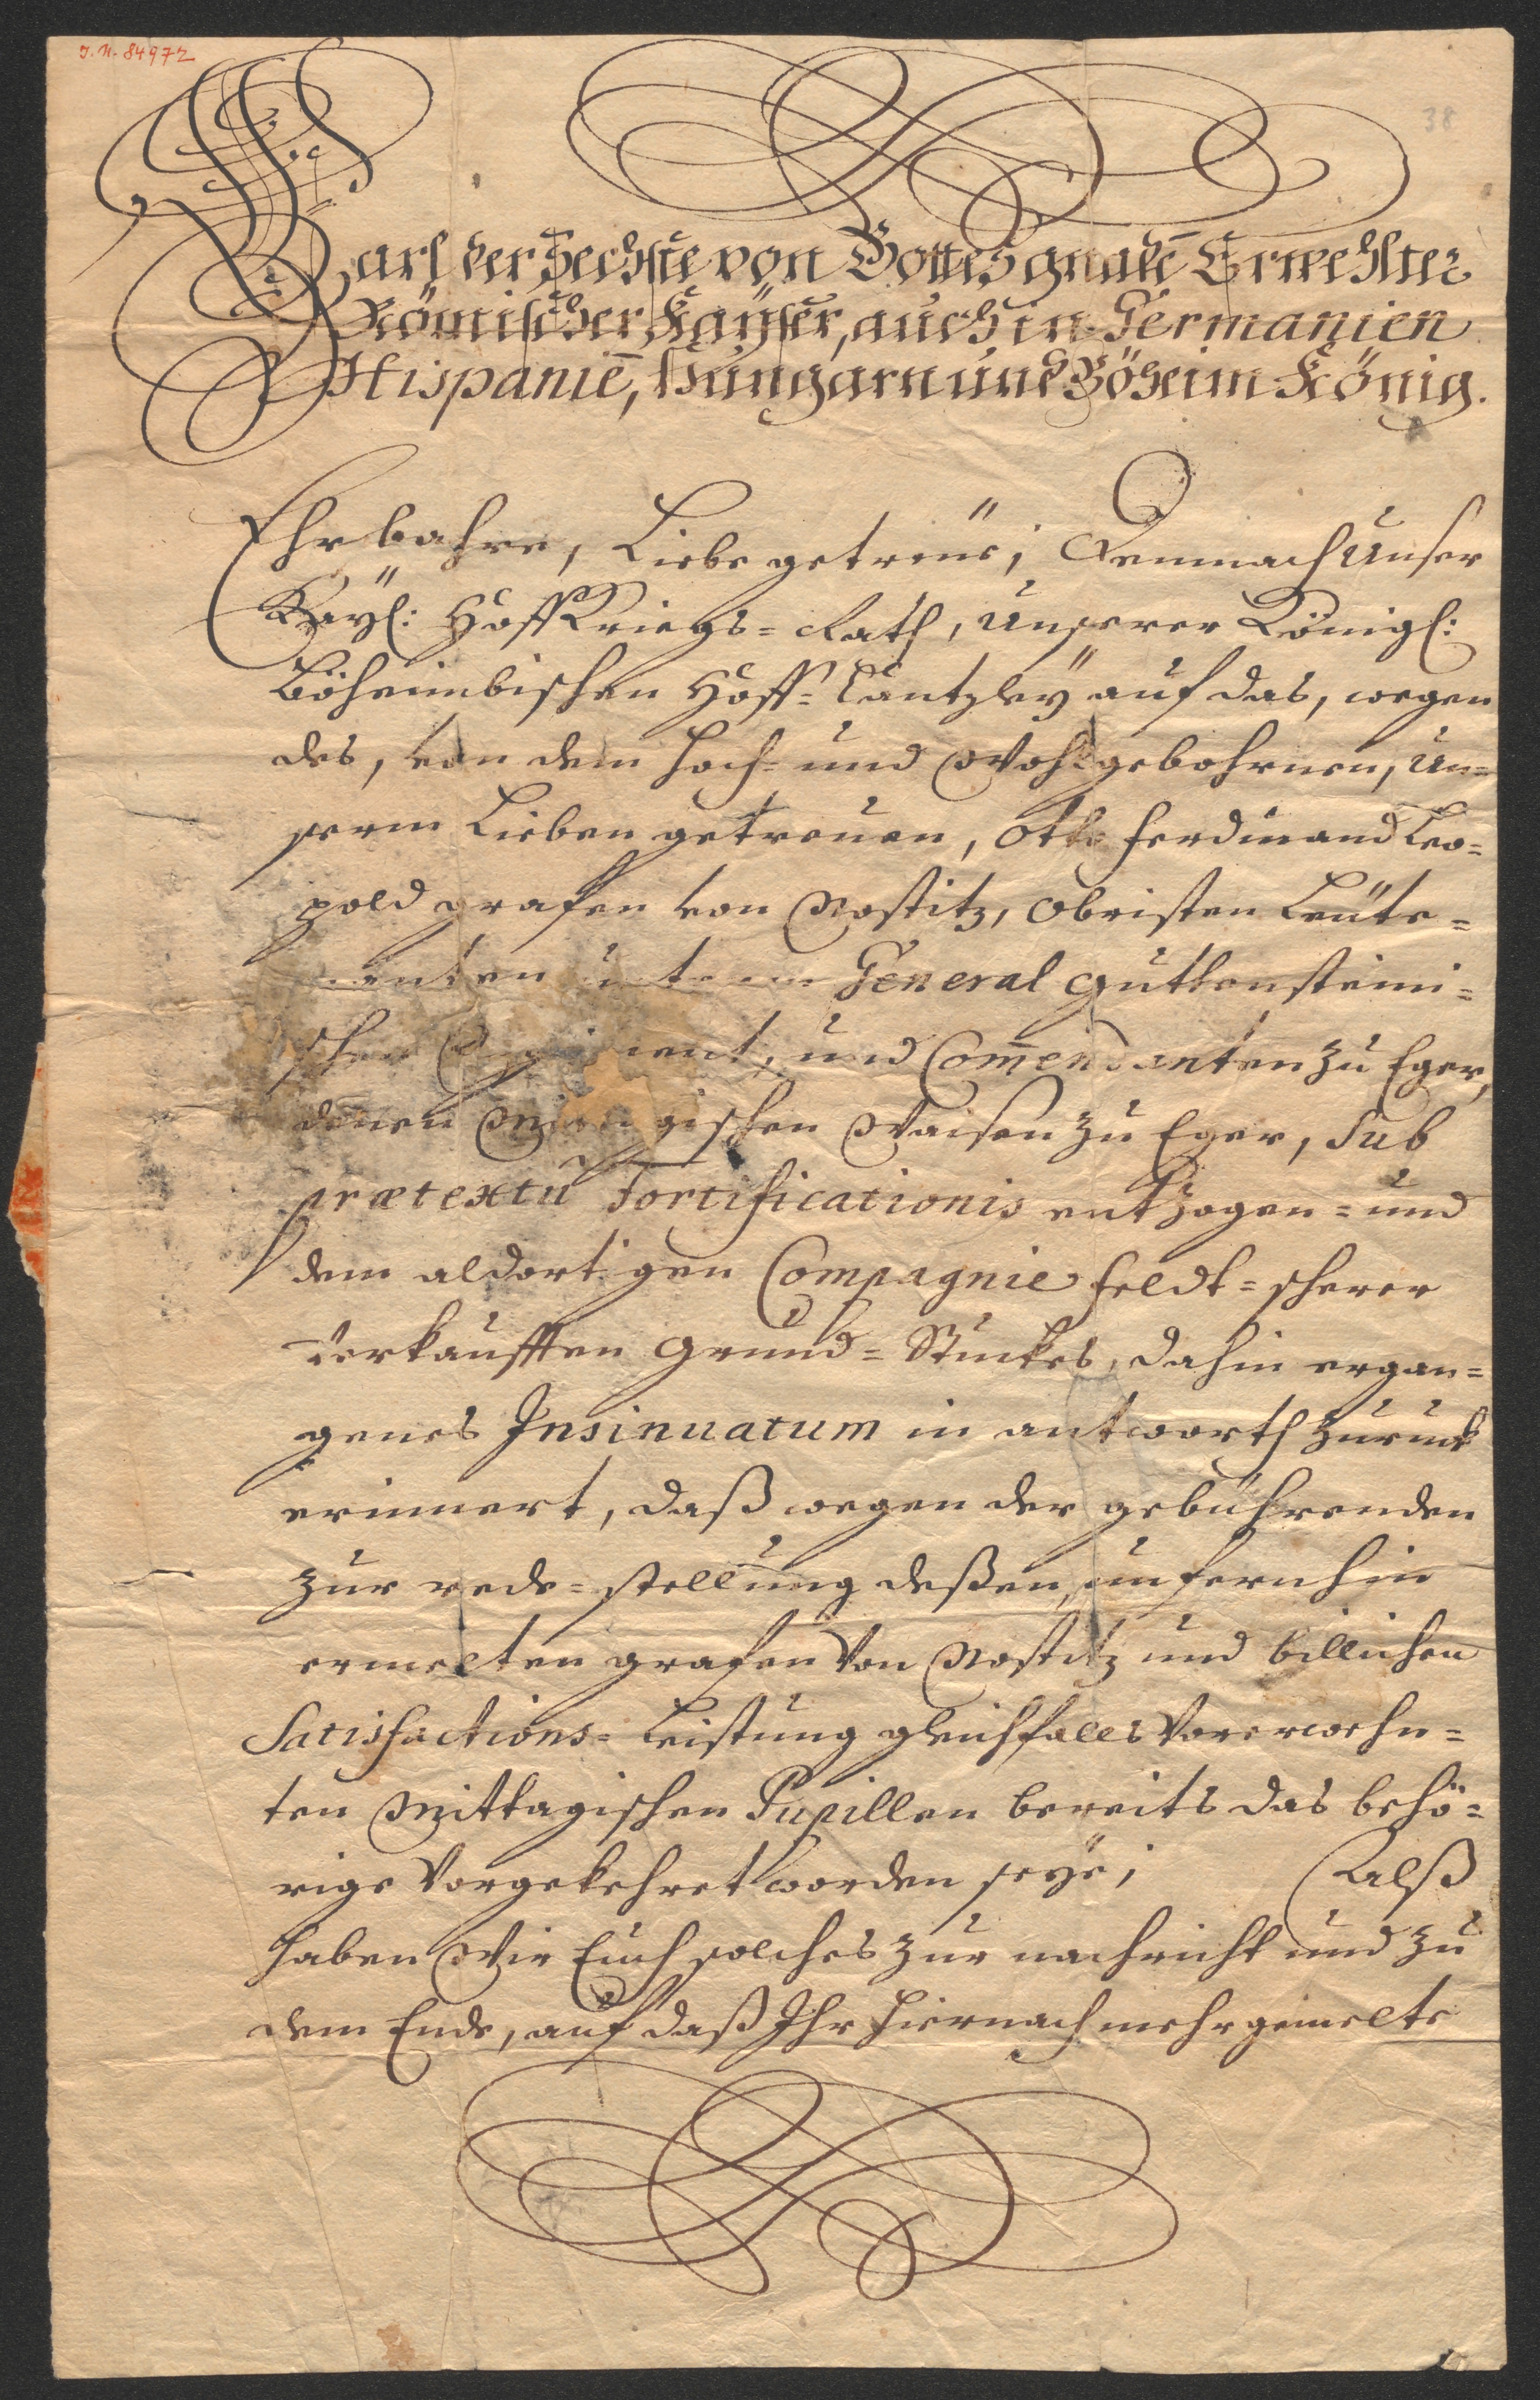 J. N. 84972
38
Carl der Sechste von Gottes gnadē Erwehlter
Römischer Kaÿser, auch in Germanien
Hispaniē, Hungarn und Böheim König.
Ehrbahre, Liebe getreüe; Demnach Unser
Kaÿl: Hoff Kriegs= Rath, Unserer Königl:
Böheimbischen Hoff=Cantzleÿ auf das, wegen
des, von dem Hoch= und Wohlgebohrnen, Un=
serm Lieben getreuen, Otto Ferdinand Leo=
pold grafen von Nostitz, Obristen Leüte=
nanten General Guttensteini=
schen Regiment, und Com̄endanten zu Eger,
denen Mittagischen Waisen zu Eger, sub
prætextu Fortificationis entzogen= und
dem aldortigen Compagnie Feldt=scherer
verkaufften Grund=Stuckes, dahin ergan=
genes Insinuatum in antworth zuruck
erinnert, daß wegen der gebührenden
zur rede=stellung deßen, unfernhin
ermelten grafen Von Nostitz und billichen
Satisfactions=Leistung gleichfalls Vorerwehn=
ten Mittagischen Pupillen bereits das behö=
rige Vorgekehret worden seÿe; Alß
haben Wir Euch solches zur nachricht und zu
dem Ende, auf daß Ihr hiernach mehrgemelte